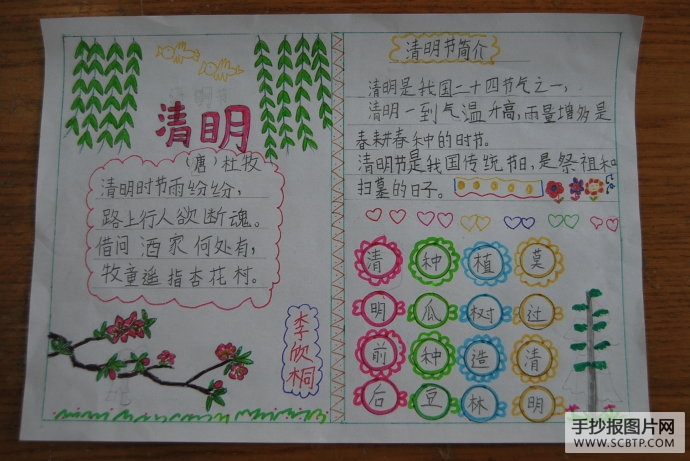 清明
（唐）杜牧
清明时节雨纷纷，
路上行人欲断魂。
借问酒家何处有，
牧童遥指杏花村。
李欣桐
清明节简介
清明是我国二十四节气之一，
清明一到气温升高，雨量增多是
春耕春种的时节。
清明节是我国传统节日，是祭祖和
扫墓的日子。
清 种 植 莫
明 瓜 树 过
前 种 造 清
后 豆 林 明
手抄报图片网
WWW.SCBTP.COM